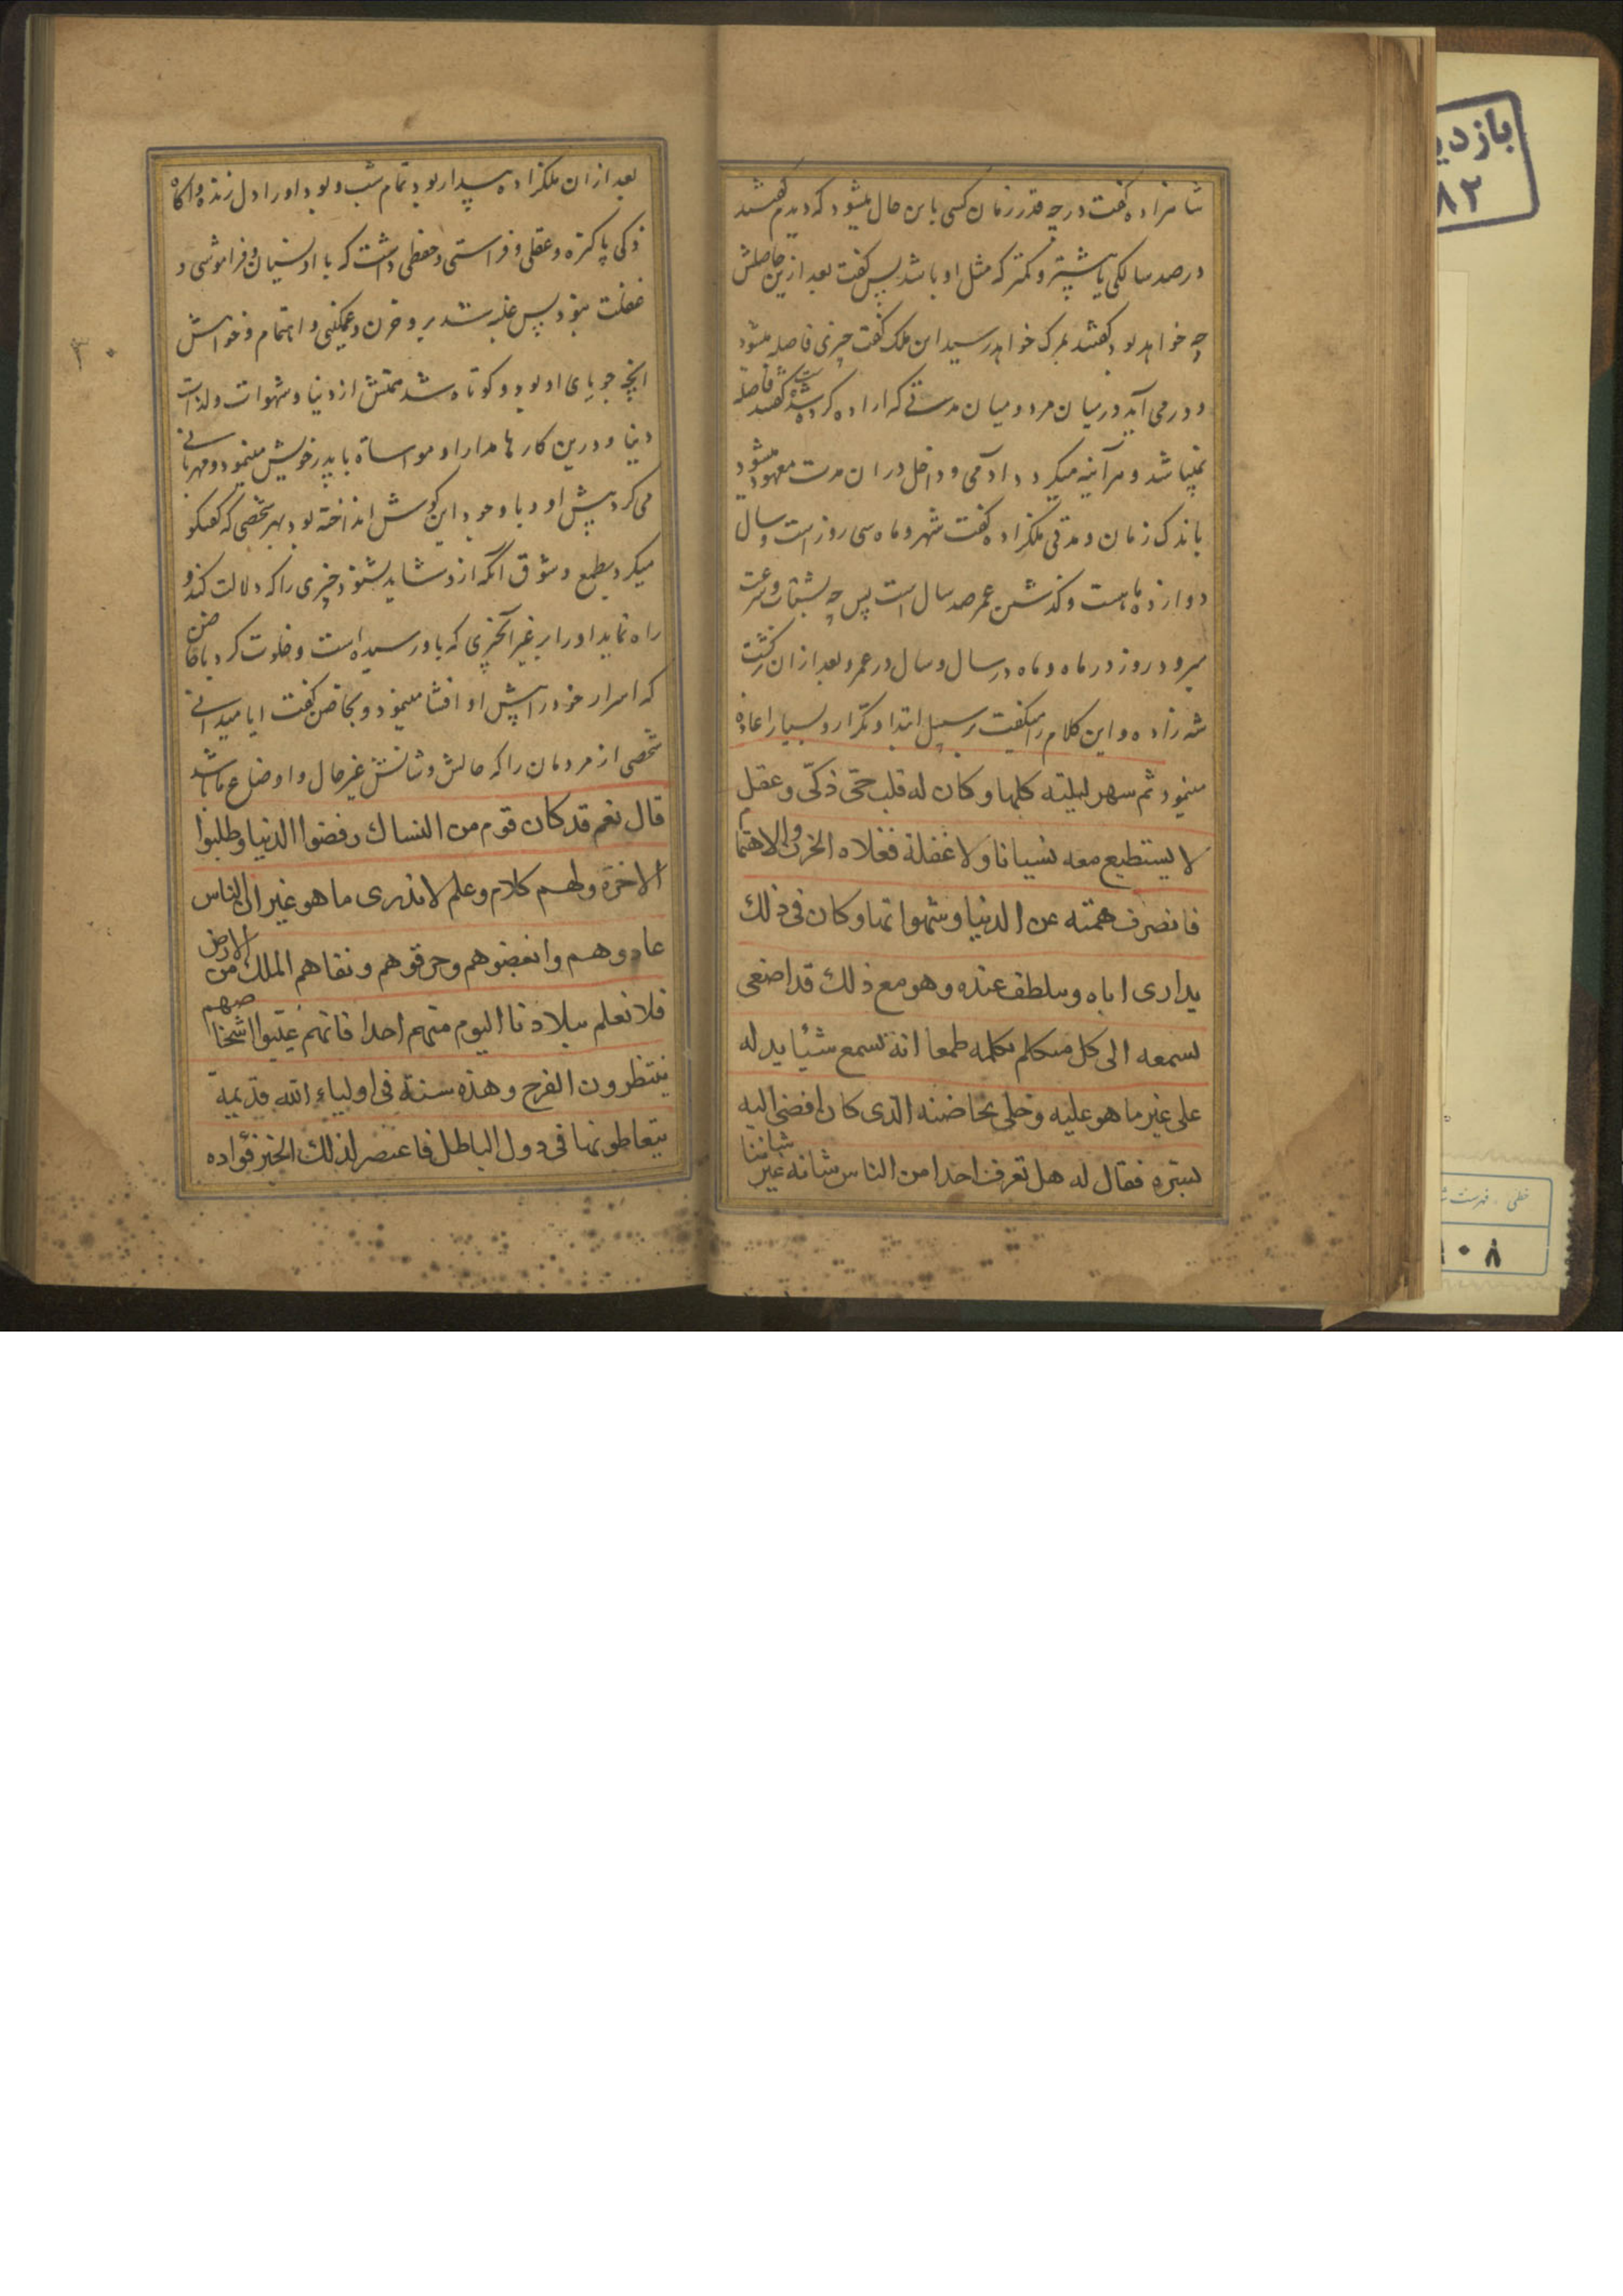 شاهزاده گفت در چه قدر زمان کسی باین حال میشود که دیدم گفتند
در صد سالکی یا بیشتر و کمتر که مثل او باشد پس گفت بعد ازین حاصلش
چه خواهد بود گفتند بمرک خواهد رسید ابن ملک گفت چیزی فاصله میشود
و در می آید در میان مرد و میان مدتی که اراده کرده شده است گفتند فاصله
نمیباشد و هرآینه میکردد آدمی و داخل در ان مدت معهود میشود
باندک زمان و مدتی ملکزاده گفت شهر و ماه سی روز است و سال
دوازده ماهست و گذشتن عمر صد سال است پس چه بشتاب و سرعت
میرود روز در ماه و ماه در سال و سال در عمر و بعد ازان برگشت
شهزاده و این کلام را میگفت بر سبیل ابتدا و تکرار و بسیار اعاده
مینمود ثم سهر لیلته کلها و کان له قلب حیّ ذکیّ و عقل
لا یستطیع معه نسیانا ولا غفلة فغلاه الحزن و الاهتمام
فانصرف همته عن الدنیا و شهواتها و کان فی ذلك
یداری اباه و یتلطف عنده و هو مع ذلك قد اضغی
بسمعه الی کل متکلم بکلمه طمعا انه یسمع شیئا یدله
علی غیر ما هو علیه و خلی بحاضنه الذی کان افضی الیه
بسره فقال له هل تعرف احدا من الناس شانه غیر شاننا
بعد ازان ملکزاده بیدار بود تمام شب و بود او را دل زنده و آکاه
ذکی پاکیزه و عقلی و فراستی و حفظی داشت که با او نسیان و فراموشی و
غفلت نبود پس غلبه شد برو حزن و غمکینی و اهتمام و خواهش
آنچه جویای او بود و کوتاه شد همتش از دنیا و شهوات و لذات
دنیا و درین کارها مدارا و مواساة با پدر خویش مینمود و مهربانی
می کرد پیش او و با وجود این گوش انداخته بود بهر شخصی که گفتگو
میکرد بطمع و شوق آنکه ازو شاید بشنود چیزی را که دلالت کند و
راه نماید او را بر غیر آنچیزی که باو رسیده است و خلوت کرد با حاضن
که اسرار خود را پیش او افشا مینمود و بحاضن گفت ایا میدانی
شخصی از مردمان را که حالش و شانش غیر حال و اوضاع ما باشد
قال نعم قد کان قوم من النساك رفضوا الدنیا و طلبوا
الاخرة و لهم کلام و علم لا ندری ما هو غیر ان الناس
عادوهم و ابغضوهم و حرقوهم و نفاهم الملك من الارض
فلا نعلم ببلادنا الیوم منهم احدا فانهم غیّبوا اشخاصهم
ینتظرون الفرج و هذه سنة فی اولیاء الله قدیمة
یتعاطونها فی دول الباطل فاعتصر لذلك الخبر فؤاده
۳۰
۸۲
خطی . فهرست